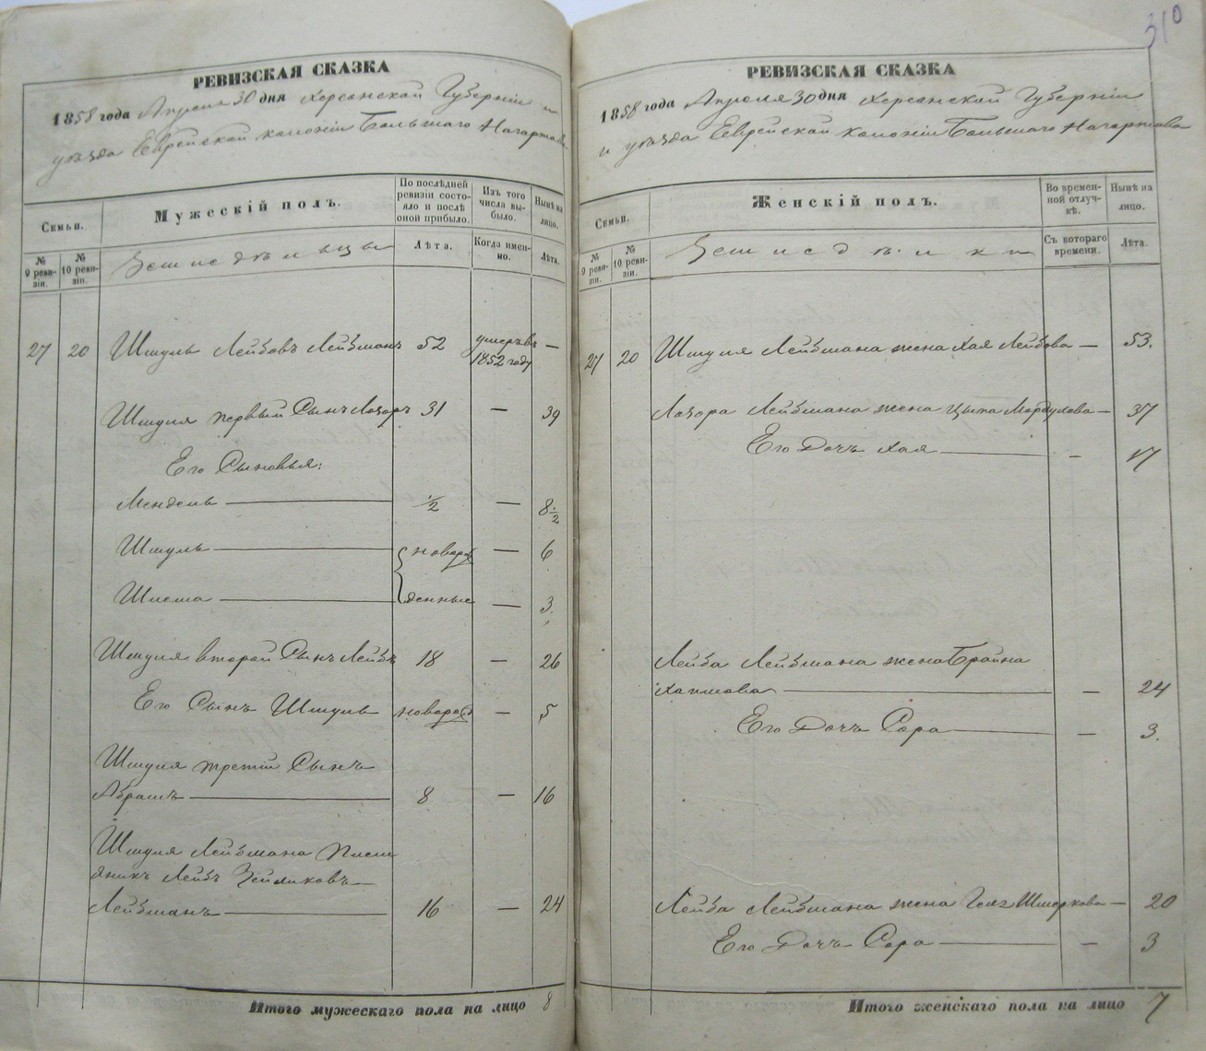 РЕВИЗСКАЯ СКАЗКА
1858 года Апреля 30 дня Херсанской Губерніи и
уѣзда Еврейской колоніи Большаго Нагартава
Семьи.
Мужескій полъ.
По послѣдней ревизіи состояло и послѣ оной прибыло.
Изъ того числа выбыло.
Нынѣ на лицо.
№ 9 ревизіи.
№ 10 ревизіи.
Земледѣльцы
Лѣта.
Когда именно.
Лѣта.
27 20 Шмуль Лейбовъ Лейзманъ 52 умеръ въ 1852 году —
Шмуля первый Сынъ Лазаръ 31 — 39
Его Сыновья:
Мендель — 1/2 — 8 1/2
Шмуль — новорож — 6
— денные — 3.
Шмуля второй Сынъ Лейбъ 18 — 26
Его Сынъ Шмуль новорож — 5
Шмуля третій Сынъ
Абрамъ — 8 — 16
Шмуля Лейзмана Племяникъ Лейбъ
Лейзманъ — 16 — 24
Итого мужескаго пола на лицо 8
310
РЕВИЗСКАЯ СКАЗКА
1858 года Апреля 30 дня Херсанской Губерніи
и уѣзда Еврейской колоніи Большаго Нагартава
Семьи.
Женскій полъ.
Во временной отлучкѣ.
Нынѣ на лицо.
№ 9 ревизіи.
№ 10 ревизіи.
Съ котораго времени.
Лѣта.
27 20 Шмуля Лейзмана жена Хая Лейбова — 53.
Лазора Лейзмана жена Цыпа Мордухова — 37
Его Дочь Хая — — 17
Лейба Лейзмана жена Брайна
Хаимова — — 24
Его Дочь Сора — — 3.
Лейба Лейзмана жена Шмеркова — 20
Его Дочь Сора — — 3
Итого женскаго пола на лицо 7